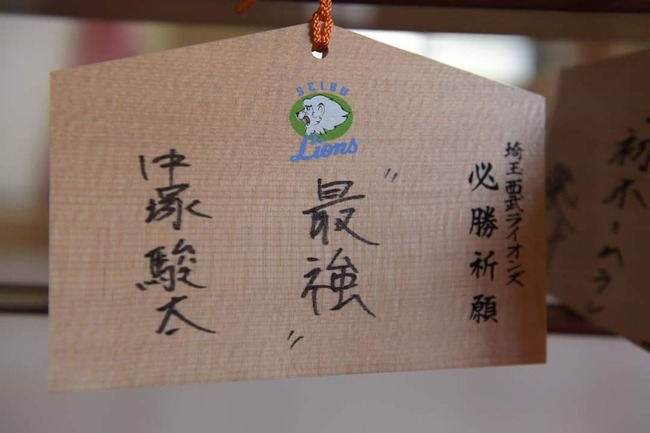 SEIBU
Lions
埼玉西武ライオンズ
必勝祈願
"最強"
中塚駿太
初ホームラン